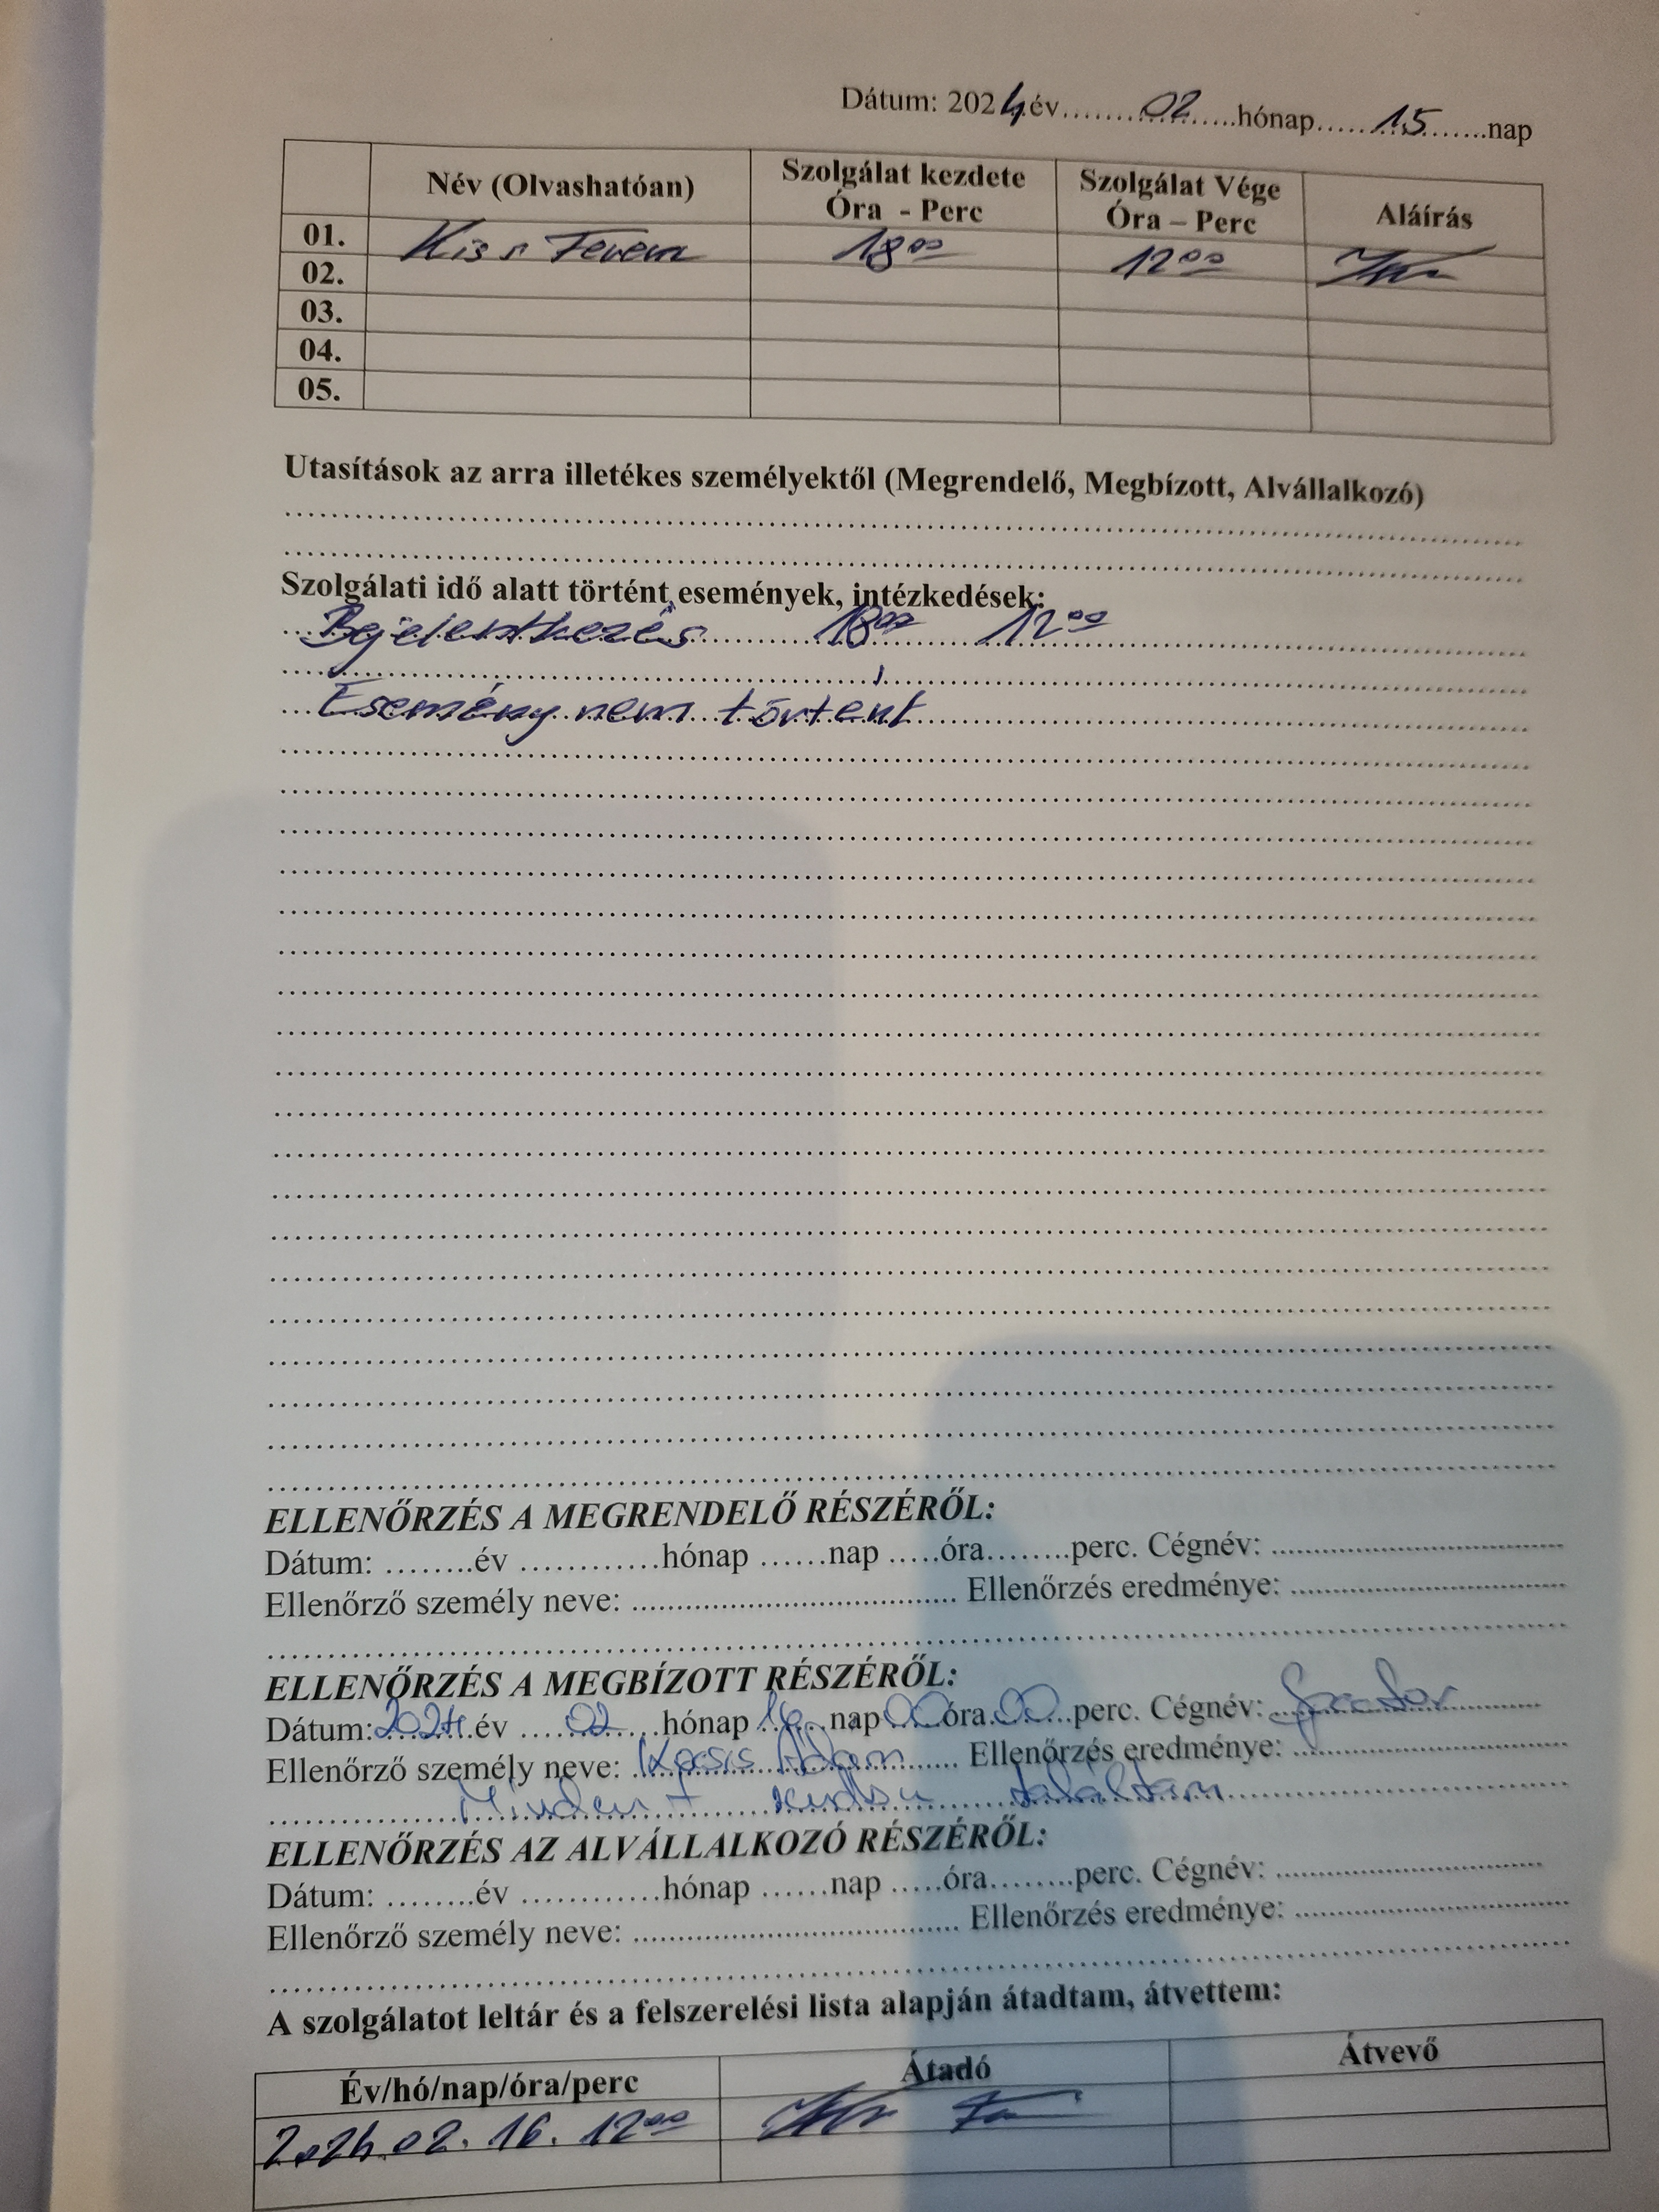 Dátum: 2024 év 02 hónap 15 nap
Név (Olvashatóan) Szolgálat kezdete Óra - Perc Szolgálat Vége Óra – Perc Aláírás
01. Kiss Ferenc 18 00 12 00
02.
03.
04.
05.
Utasítások az arra illetékes személyektől (Megrendelő, Megbízott, Alvállalkozó)
Szolgálati idő alatt történt események, intézkedések:
Bejelentkezés 18 00 12 00
Esemény nem történt
ELLENŐRZÉS A MEGRENDELŐ RÉSZÉRŐL:
Dátum: ........év ............hónap ......nap .....óra........perc. Cégnév: ................................
Ellenőrző személy neve: .................................... Ellenőrzés eredménye: ..............................
ELLENŐRZÉS A MEGBÍZOTT RÉSZÉRŐL:
Dátum: 2024. év 02 hónap 16 nap 00 óra 00 perc. Cégnév:
Ellenőrző személy neve: Ádám Ellenőrzés eredménye:
Mindent rendben találtam
ELLENŐRZÉS AZ ALVÁLLALKOZÓ RÉSZÉRŐL:
Dátum: ........év ............hónap ......nap .....óra........perc. Cégnév: ..............................
Ellenőrző személy neve: .................................... Ellenőrzés eredménye: ..............................
A szolgálatot leltár és a felszerelési lista alapján átadtam, átvettem:
Év/hó/nap/óra/perc Átadó Átvevő
2024.02.16. 12 00